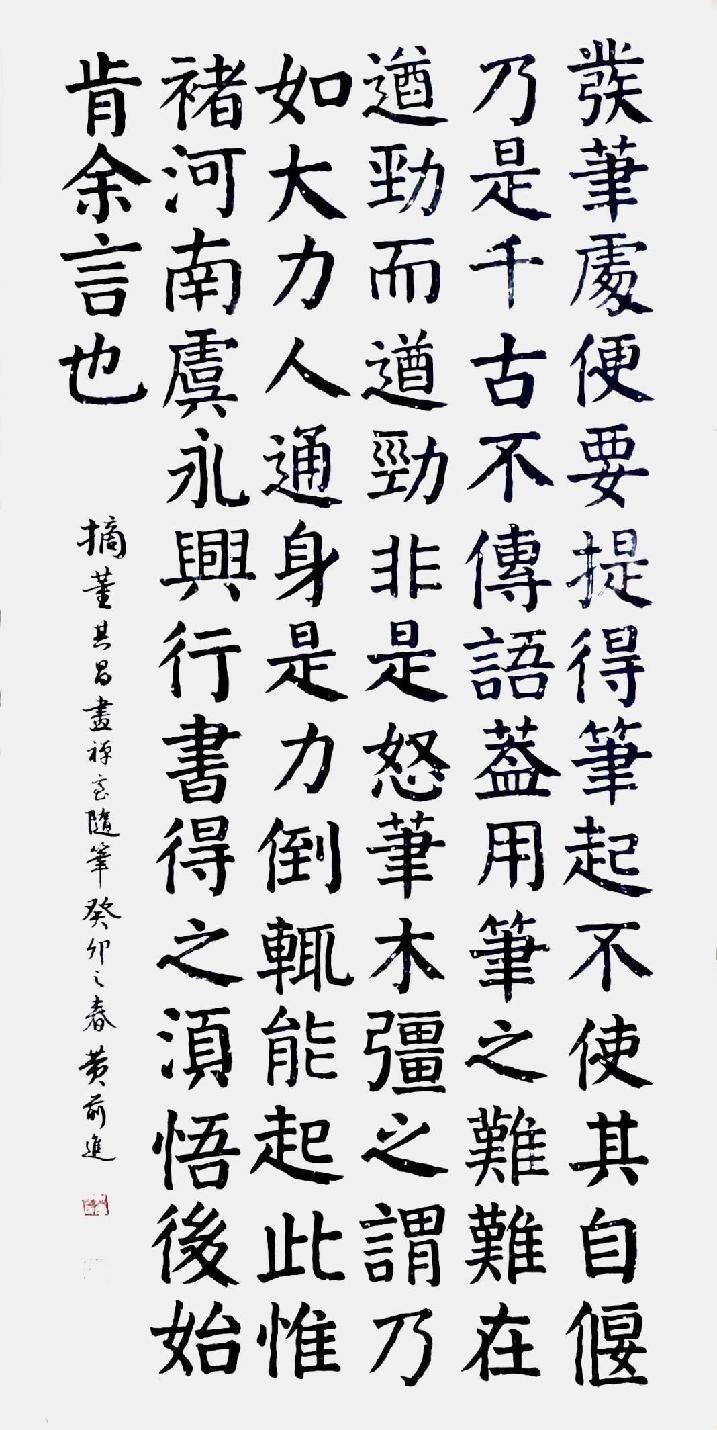 發筆處便要提得筆起不使其自偃
乃是千古不傳語蓋用筆之難難在
遒勁而遒勁非是怒筆木彊之謂乃
如大力人通身是力倒輒能起此惟
褚河南虞永興行書得之湏悟後始
肯余言也
摘董其昌畫禪室隨筆癸卯之春黄前進